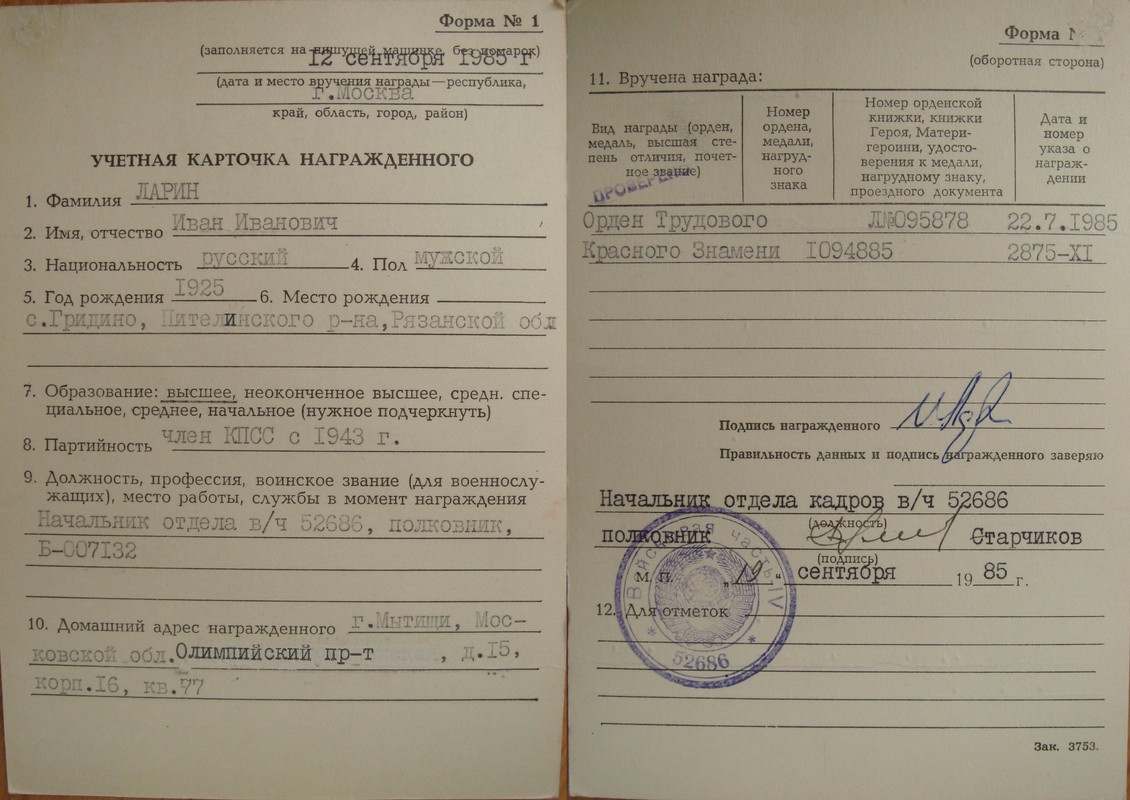 Форма № 1
(заполняется на пишущей машинке, без помарок)
12 сентября 1985 г
(дата и место вручения награды—республика,
г.Москва
край, область, город, район)
УЧЕТНАЯ КАРТОЧКА НАГРАЖДЕННОГО
1. Фамилия ЛАРИН
2. Имя, отчество Иван Иванович
3. Национальность русский 4. Пол мужской
5. Год рождения 1925 6. Место рождения
с.Гридино, Пителинского р-на,Рязанской обл
7. Образование: высшее, неоконченное высшее, средн. спе-
циальное, среднее, начальное (нужное подчеркнуть)
8. Партийность член КПСС с 1943 г.
9. Должность, профессия, воинское звание (для военнослу-
жащих), место работы, службы в момент награждения
Начальник отдела в/ч 52686, полковник,
Б-007132
10. Домашний адрес награжденного г.Мытищи, Мос-
ковской обл.Олимпийский пр-т , д.15,
корп.16, кв.77
Форма №
(оборотная сторона)
11. Вручена награда:
Вид награды (орден, медаль, высшая сте-
пень отличия, почет-
ное звание)
Номер ордена, медали, нагруд-
ного знака
Номер орденской книжки, книжки Героя, Матери-
героини, удосто-
верения к медали, нагрудному знаку, проездного документа
Дата и номер указа о награж-
дении
ПРОВЕРЕНО
Орден Трудового Л№095878 22.7.1985
Красного Знамени 1094885 2875-XI
Подпись награжденного
Правильность данных и подпись награжденного заверяю
Начальник отдела кадров в/ч 52686
(должность)
полковник Старчиков
(подпись)
М. П. „19" сентября 1985 г.
12. Для отметок
Войсковая часть IV
* 52686 *
Зак. 3753.